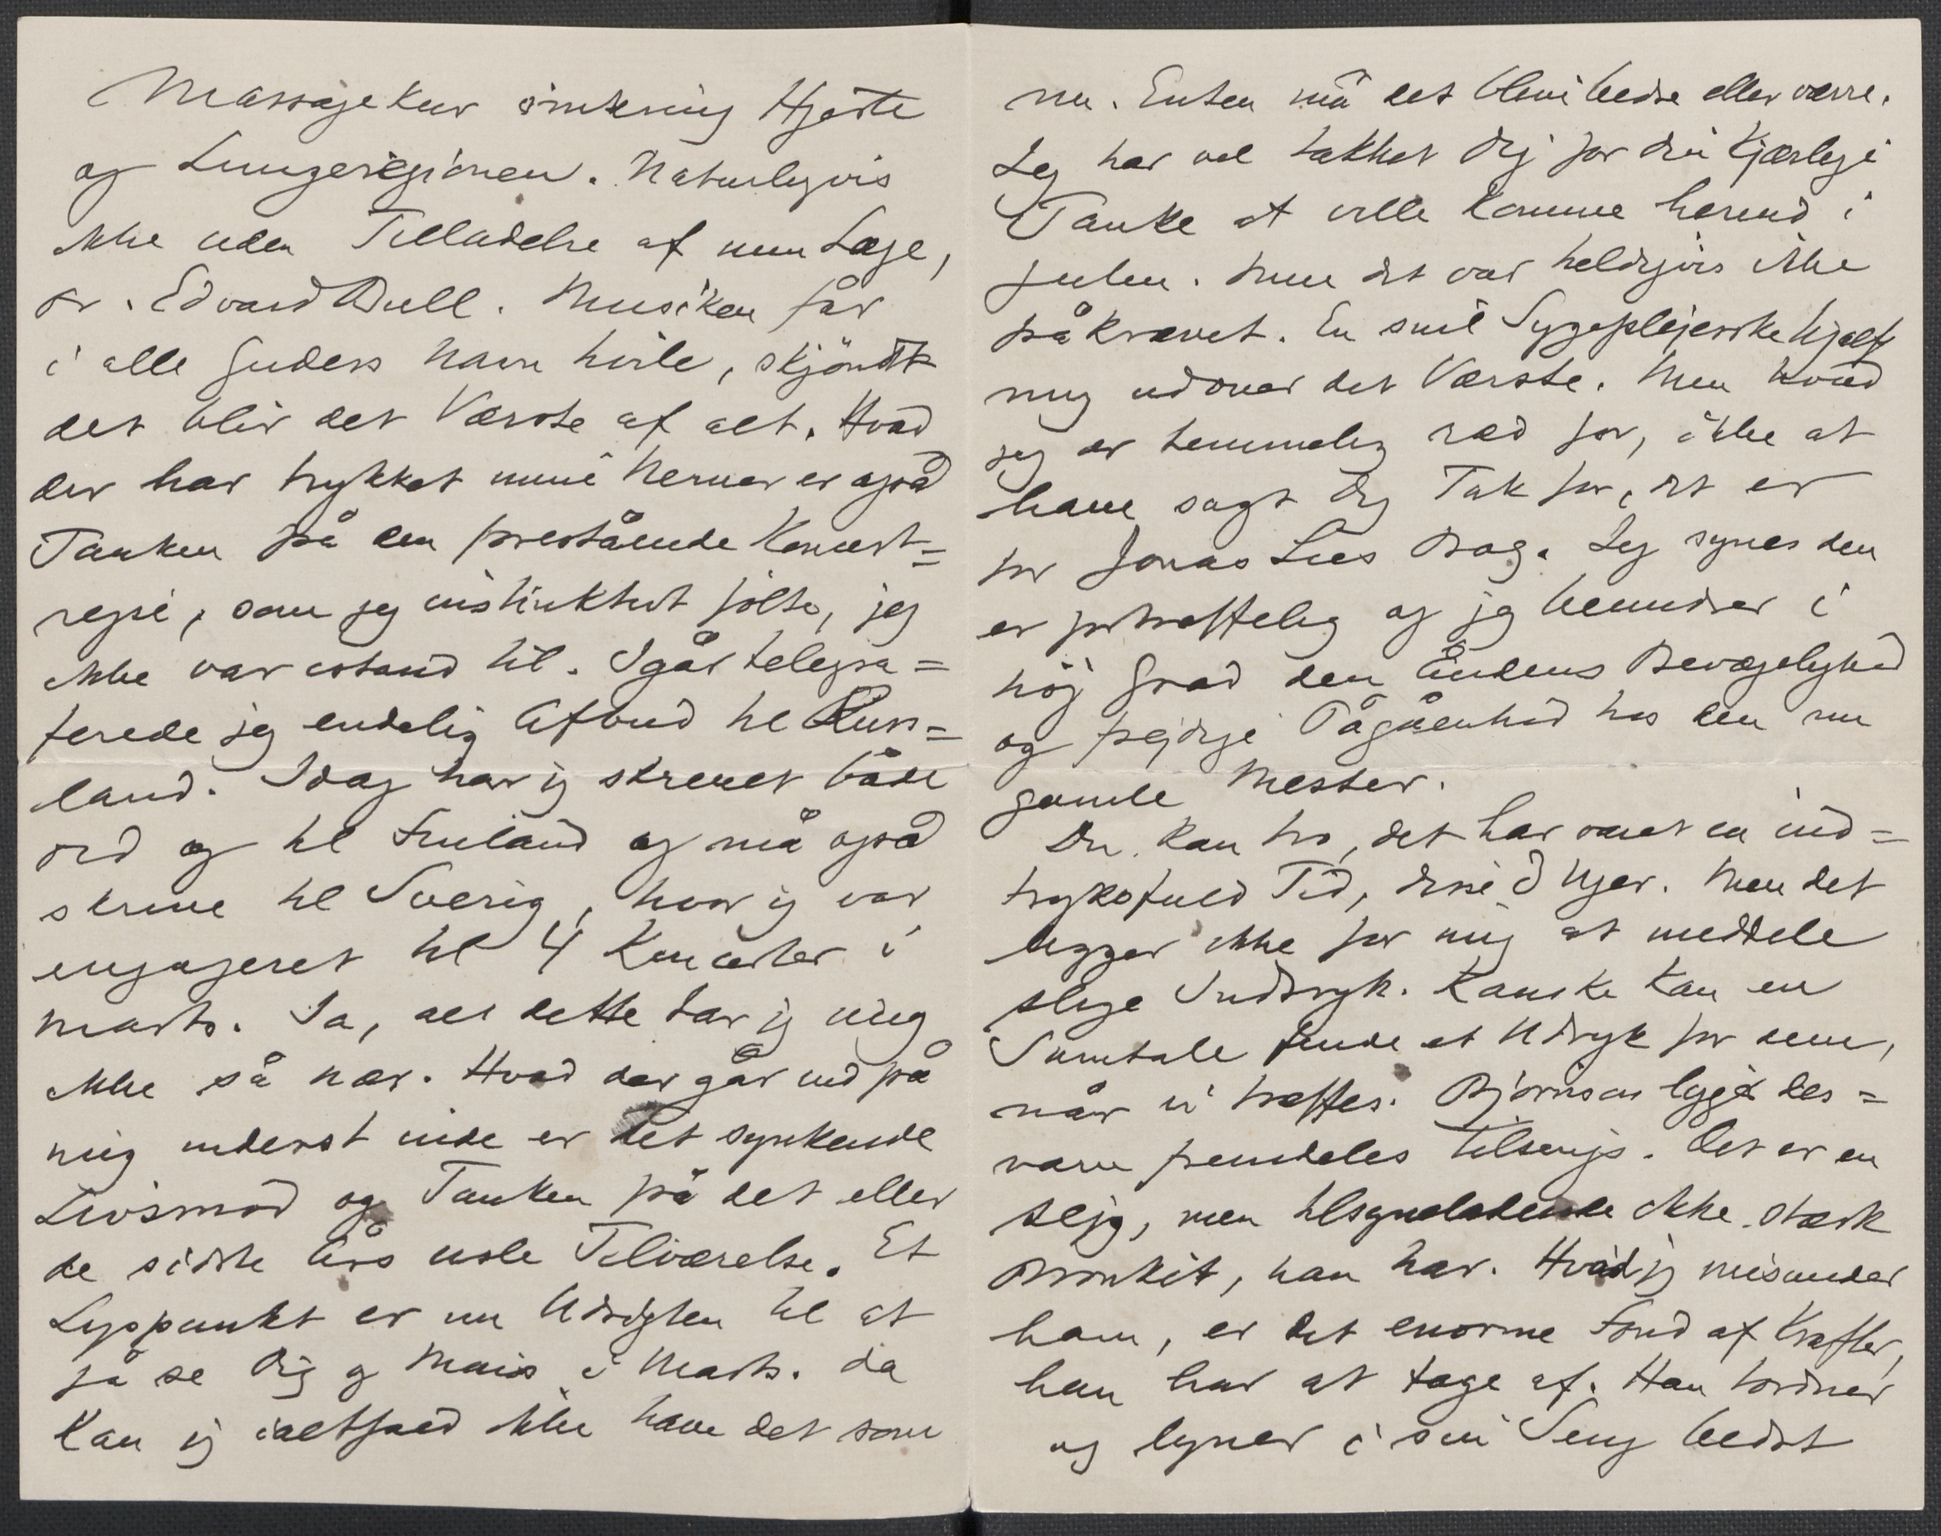 Massagekur omkring Hjerte
og Lungeregionen. Naturligvis
ikke uden Tilladelse af min Læge,
Dr. Edvard Bull. Musiken får
i alle Guders Navn hvile, skjøndt
det blir det Værste af alt. Hvad
der har trykket mine Nerver er også
Tanken på den forestående Koncert=
rejse, som jeg instinktivt følte, jeg
ikke var istand til. Igår telegra=
ferede jeg endelig Afbud til Russ=
land. Idag har jeg skrevet både
did og til Finland og må også
skrive til Sverig, hvor jeg var
engageret til 4 Koncerter i
Marts. Ja, alt dette tar jeg mig
ikke så nær. Hvad der går ind på
mig inderst inde er det synkende
Livsmod og Tanken på det eller
de sidste Års usle Tilværelse. Et
Lyspunkt er nu Udsigten til at
få se Dig og Mais i Marts. Da
kan jeg ialtfald ikke have det som
nu. Enten må det blive bedre eller værre.
Jeg har vel takket Dig for din kjærlige
Tanke at ville komme herind i
Julen. Men det var heldigvis ikke
påkrævet. En snil Sygeplejerske hjalp
mig udover det Værste. Men hvad
jeg er temmelig ræd for, ikke at
have sagt Dig Tak for, det er
for Jonas Lies Bog. Jeg synes den
er fortræffelig og jeg beundrer i
høj Grad den Åndens Bevægelighed
og frejdige Pågåenhed hos den nu
gamle Mester.
Du kan tro, det har været en ind=
tryksfuld Tid, disse 3 Uger. Men det
ligger ikke for mig at meddele
slige Indtryk. Kanske kan en
Samtale finde et Udtryk for dem,
når vi træffes. Bjørnson ligger des=
værre fremdeles tilsengs. Det er en
sejg, men tilsyneladende ikke stærk
Bronkit, han har. Hvad jeg misunder
ham, er det enorme Fond af Kræfter,
han har at tage af. Han tordner
og lyner i sin Seng bedst